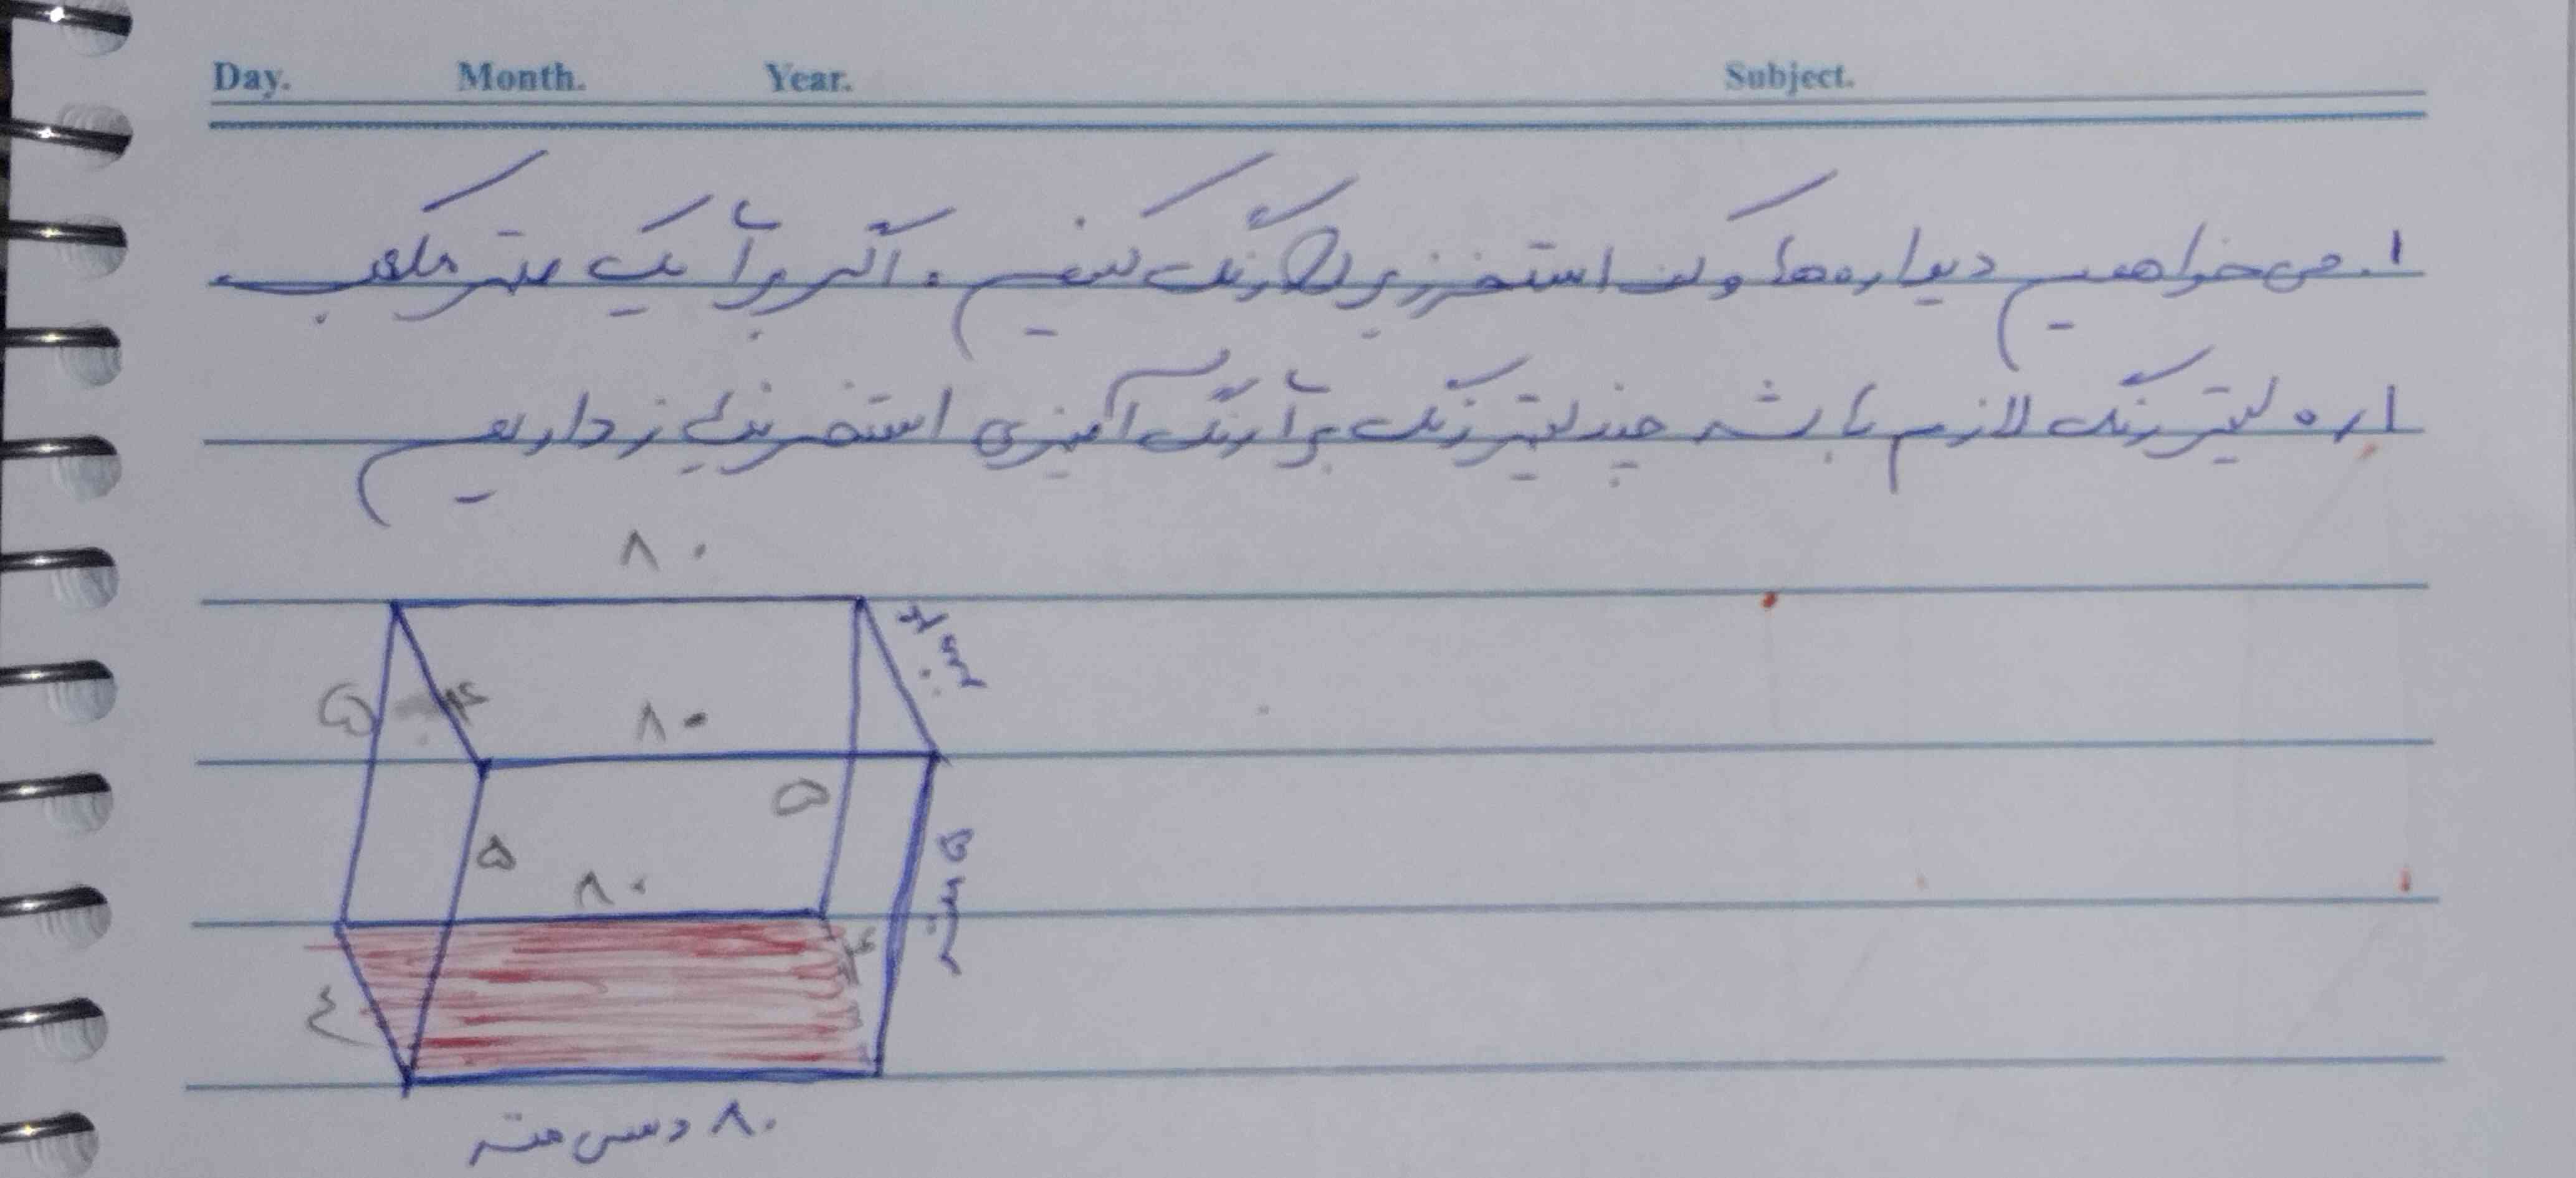 Day. Month. Year. Subject.
۱. می‌خواهیم دیواره‌ها و کف استخر زیر را رنگ کنیم. اگر برا یک متر مکعب
۱/۵ لیتر رنگ لازم باشد چند لیتر رنگ برا رنگ آمیزی استخر نیاز داریم
۸۰
۴ متر
۵ ۴ ۸۰
۵
۵ ۵ متر
۸۰
۴
۴
۸۰ دسی متر